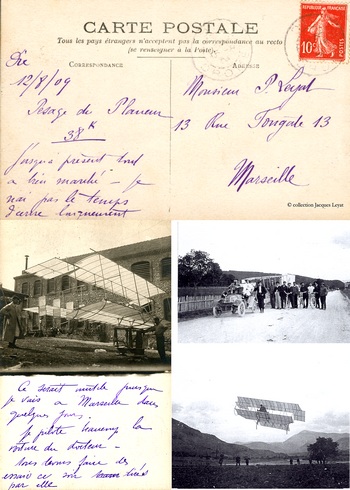 CARTE POSTALE
Tous les pays étrangers n'acceptent pas la correspondance au recto
(se renseigner à la Poste).
CORRESPONDANCE
ADRESSE
RÉPUBLIQUE FRANÇAISE
10c
POSTES
12/8/09
Pesage du Planeur
38K
Jusqu'à présent tout
a bien marché - je
n'ai pas le temps
d'écrire longuement
Monsieur P. Leyat
13 Rue 13
Marseille
© collection Jacques Leyat
Ce serait inutile puisque
je vais à Marseille dans
quelques jours.
Je pilote la
voiture du docteur -
Nous devons faire les
essais car on
par elle